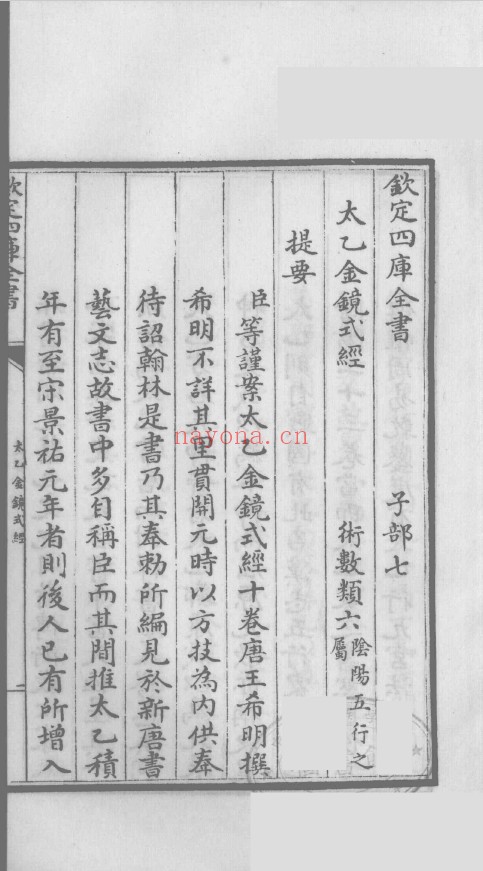 欽定四庫全書 子部七
太乙金鏡式經 術數類六陰陽五行之屬
提要
臣等謹案太乙金鏡式經十卷唐王希明撰
希明不詳其里貫開元時以方技為内供奉
待詔翰林是書乃其奉勅所編見於新唐書
藝文志故書中多自稱臣而其間推太乙積
年有至宋景祐元年者則後人已有所增入
欽定四庫全書
太乙金鏡式經
一
nayona.cn